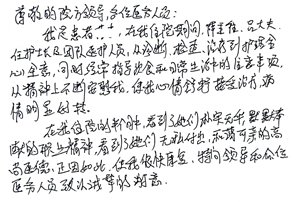 尊敬的院方领导，各位医务人员：
我是患者!!，在我住院期间，薛主任、吕大夫
任护士长及团队医护人员，从诊断、检查、治疗到护理全
心全意，同时经常指导饮食和日常生活中的注意事项，
从精神上不断安慰我，使我心情舒畅接受治疗，病
情明显好转。
在我住院的料间，看到了她们朴实无华、默默奉
献的职业精神，看到了她们无私付出、和蔼可亲的高
尚医德，正因如此，使我很快康复，特向领导和各位
医务人员致以诚挚的敬意。